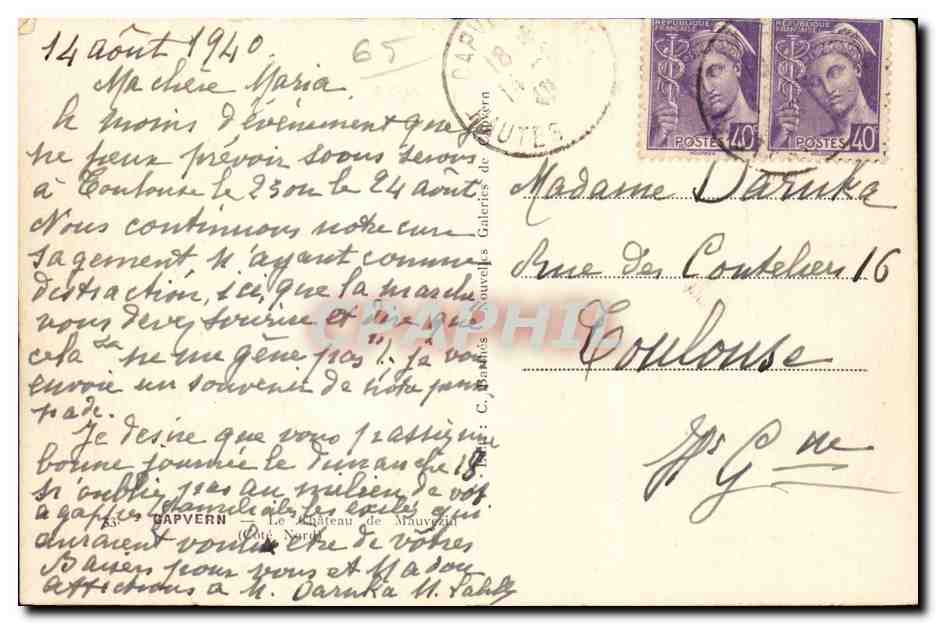 14 août 1940
65
Ma chère Maria
à moins d'évènement que je
ne peux prévoir nous serons
à Toulouse le 23 ou le 24 août
Nous continuons notre cure
sagement n'ayant comme
distraction, ici, que la marche
vous devez sourire et dire que
cela "ne me gêne pas"! je vous
envoie un souvenir de notre
Je desire que vous passiez une
bonne journée le dimanche 18
n'oubliez pas au milieu de vos
agappes familiales les exilés qui
auraient voulu être de vôtres
Baisers pour vous et Madou
affections à M. Daruka M.
33. CAPVERN — Le Château de Mauvezin
(Côté Nord)
Edit : C. Barthés (Nouvelles Galeries de Capvern
CAPVERN
18
HUTES
RÉPUBLIQUE FRANÇAISE
POSTES 40
RÉPUBLIQUE FRANÇAISE
POSTES 40
Madame Daruka
Rue des Couteliers 16
Toulouse
Hte Gne
CPAPHIL